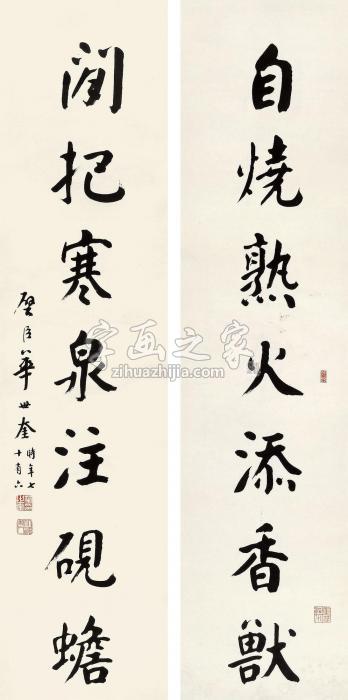 自燒熟火添香獸
閒把寒泉注硯蟾
璧臣華世奎
時年七
十有六
字画之家
zihuazhijia.com